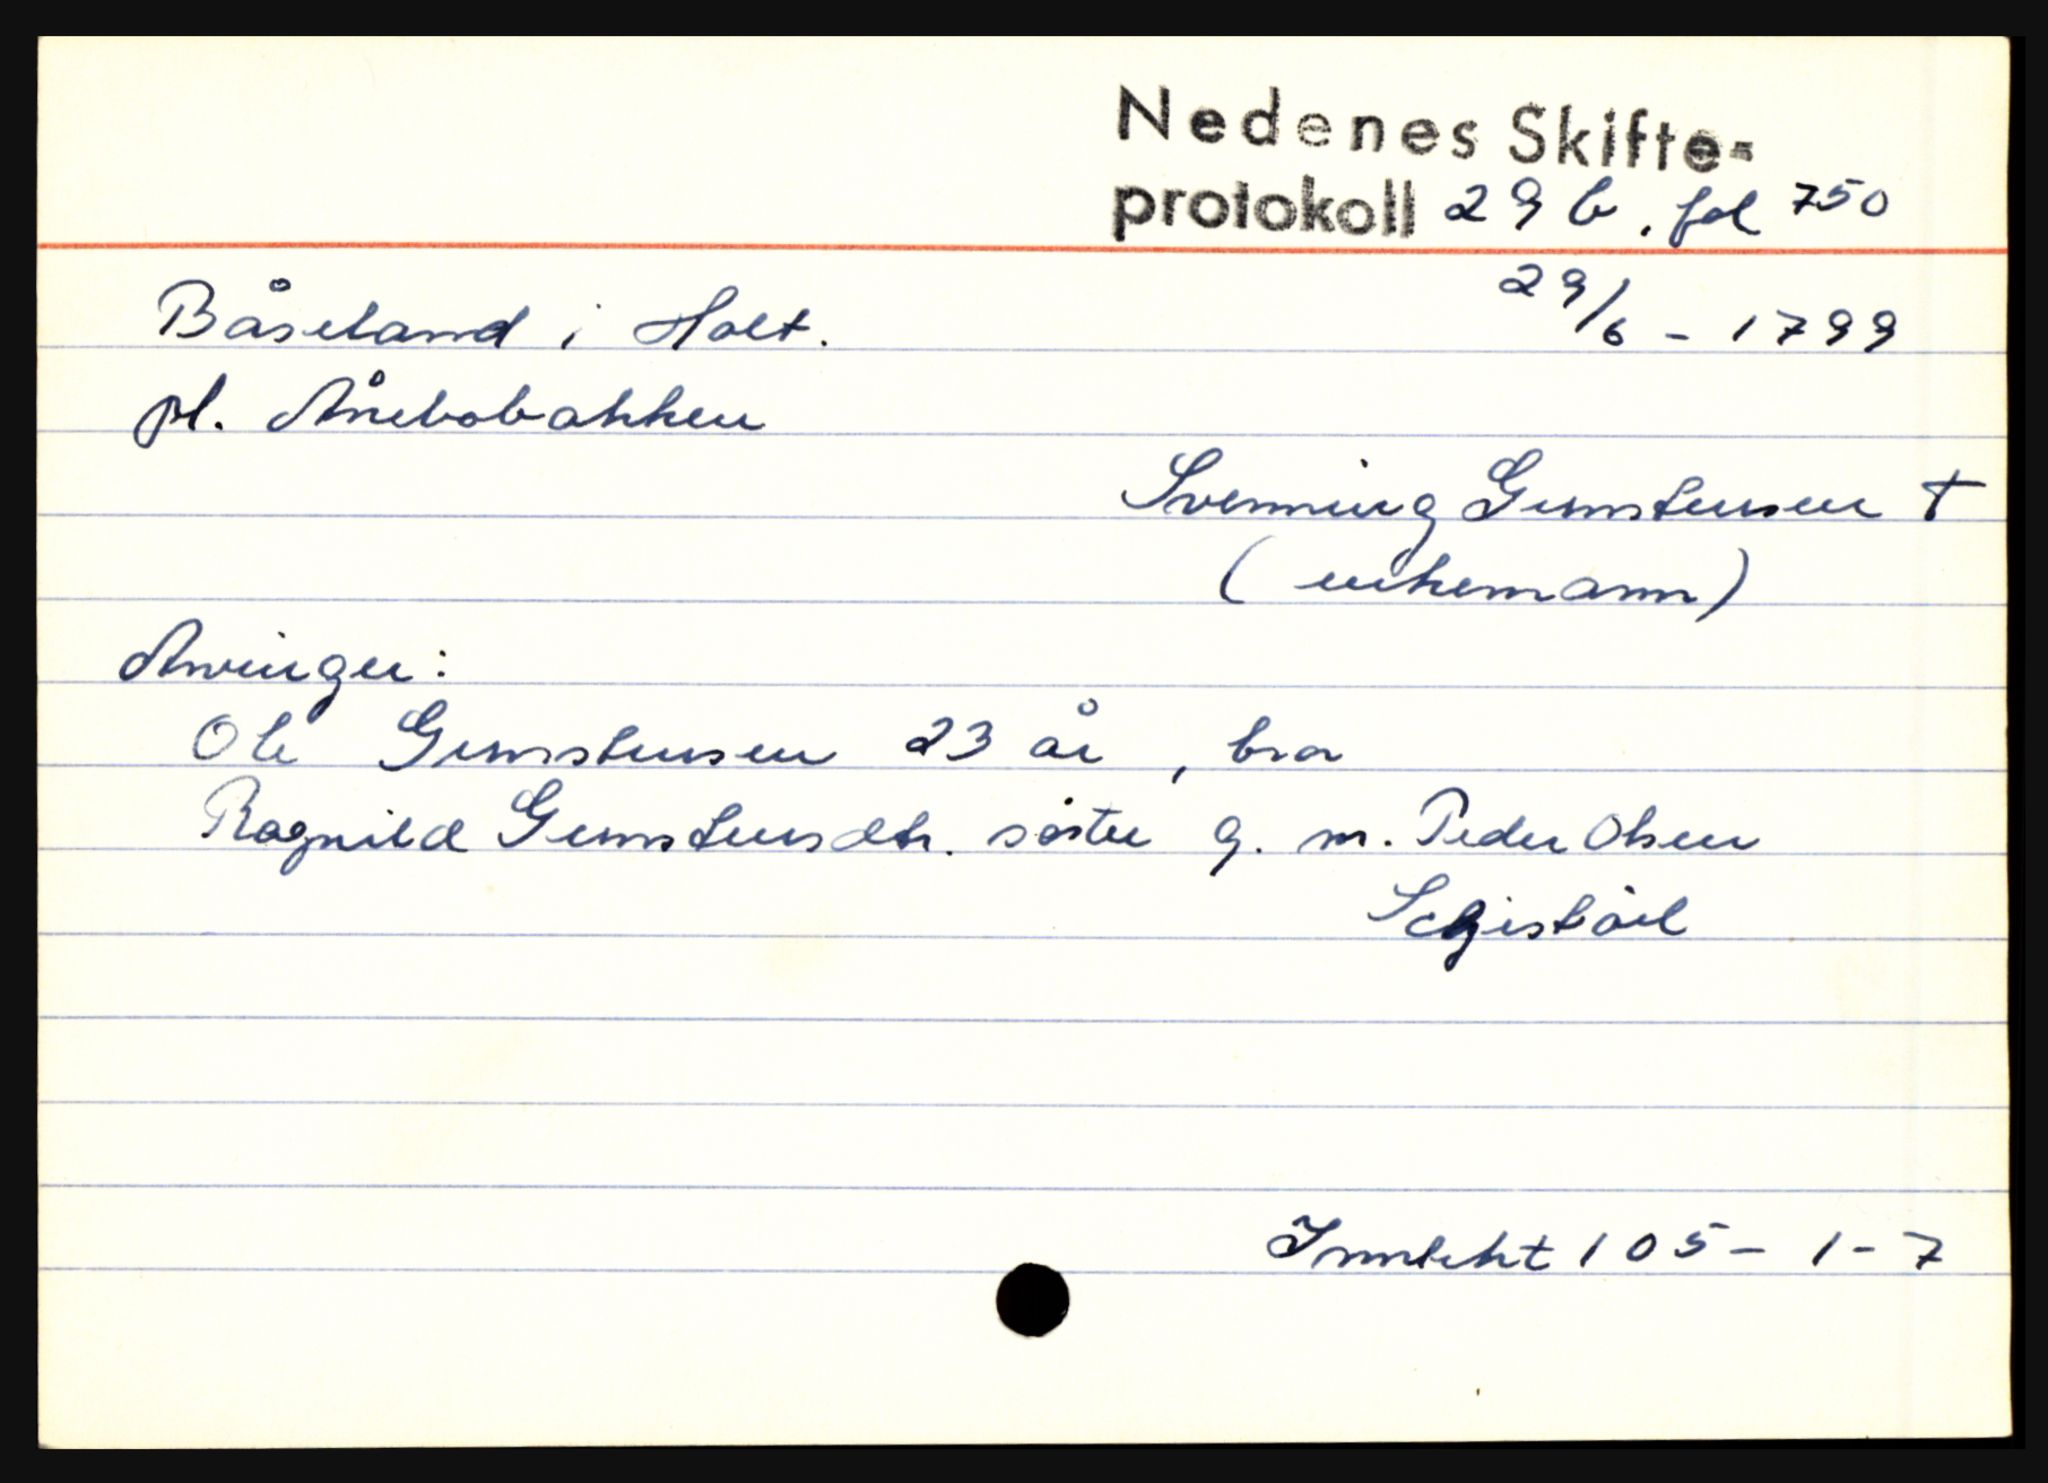 Nedenes Skifte-
protokoll 29 b, fol 750
29/6 - 1799
Båseland i Holt.
pl. Årebobakken
Svenning Gunstensen †
(enkemann)
Arvinger:
Ole Gunstensen 23 år, bror
Ragnild Gunstensdtr. søster g. m. Peder Olsen
Innteht 105 - 1 - 7